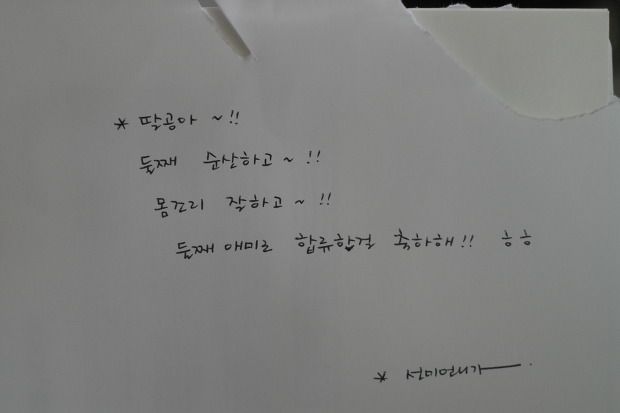 * 딸공아 ~!!
둘째 순산하고 ~!!
몸건리 잘하고 ~!!
둘째 애미로 합류한걸 축하해!! ㅎㅎ
* 선미언니가 ―.